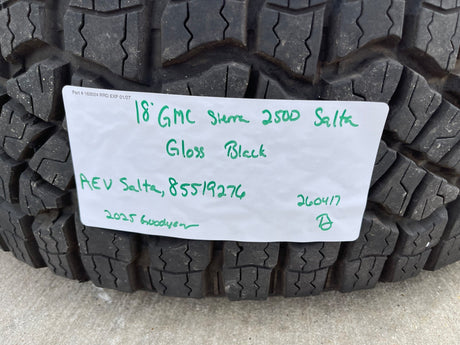 Part # 160024 RRD EXP 01/27
18" GMC Sierra 2500 Salta
Gloss Black
AEV Salta, 85519276
260417
2025 Goodyear